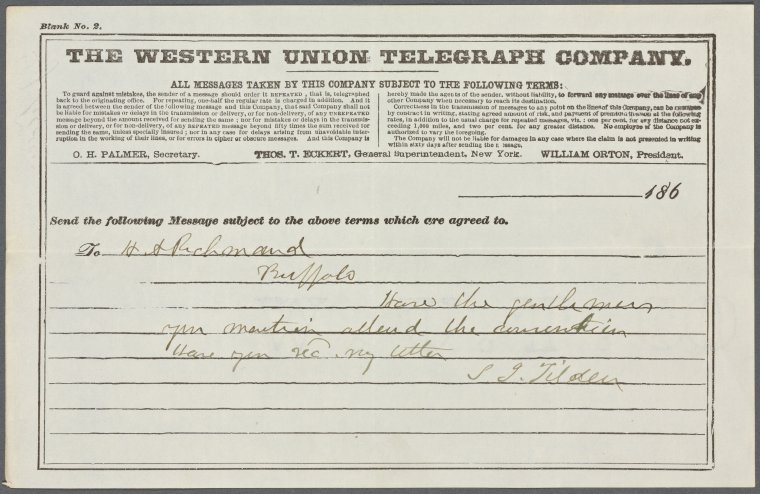 Blank No. 2.
THE WESTERN UNION TELEGRAPH COMPANY.
ALL MESSAGES TAKEN BY THIS COMPANY SUBJECT TO THE FOLLOWING TERMS:
To guard against mistakes, the sender of a message should order it REPEATED; that is, telegraphed
back to the originating office. For repeating, one-half the regular rate is charged in addition. And it
is agreed between the sender of the following message and this Company, that said Company shall not
be liable for mistakes or delays in the transmission or delivery, or for non-delivery, of any UNREPEATED
message beyond the amount received for sending the same; nor for mistakes or delays in the transmis-
sion or delivery, or for non-delivery, of any REPEATED message beyond fifty times the sum received for
sending the same, unless specially insured; nor in any case for delays arising from unavoidable inter-
ruption in the working of their lines, or for errors in cipher or obscure messages. And this Company is
hereby made the agents of the sender, without liability, to forward any message over the lines of any
other Company when necessary to reach its destination.
Correctness in the transmission of messages to any point on the lines of this Company, can be
by contract in writing, stating agreed amount of risk, and payment of premium thereon at the following
rates, in addition to the usual charge for repeated messages, viz: one per cent. for any distance not ex-
ceeding 1,000 miles, and two per cent. for any greater distance. No employee of the Company is
authorized to vary the foregoing.
The Company will not be liable for damages in any case where the claim is not presented in writing
within sixty days after sending the message.
O. H. PALMER, Secretary. THOS. T. ECKERT, General Superintendent, New York. WILLIAM ORTON, President.
186
Send the following Message subject to the above terms which are agreed to.
To H A Richmond
Buffalo
Have the gentlemen
you mention attend the convention
Have you recd my letter
S J Tilden